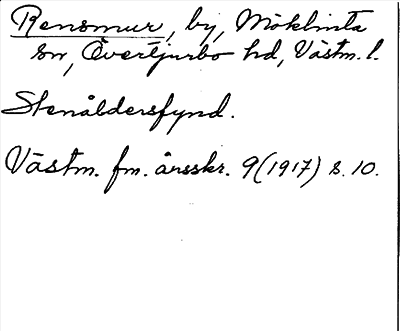 Rensmur, by, Möklinta
sn, Övertjurbo hd, Västm. l.
Stenåldersfynd.
Västm. fm. årsskr. 9 (1917) s. 10.